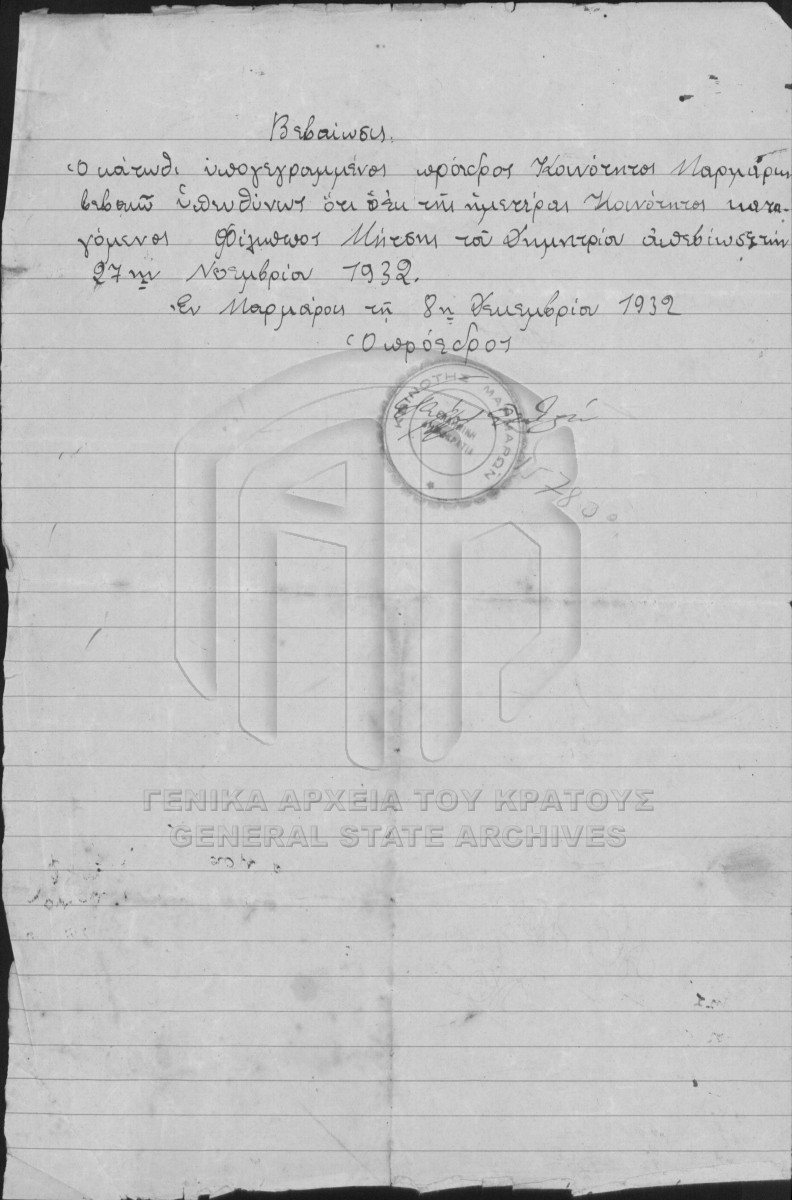 Βεβαίωσις.
Ὁ κάτωθι ὑπογεγραμμένος πρόεδρος Κοινότητος Μαρμάρων
βεβαιῶ ὑπευθύνως ὅτι ὁ ἐκ τῆς ἡμετέρας Κοινότητος κατα-
γόμενος Φίλιππος Μήτσης τοῦ Δημητρίου ἀπεβίωσε τὴν
27ην Νοεμβρίου 1932.
Ἐν Μαρμάροις τῇ 8ῃ Δεκεμβρίου 1932
Ὁ πρόεδρος
ΚΟΙΝΟΤΗΣ ΜΑΡΜΑΡΩΝ
ΕΛΛΗΝΙΚΗ
ΔΗΜΟΚΡΑΤΙΑ
ΓΕΝΙΚΑ ΑΡΧΕΙΑ ΤΟΥ ΚΡΑΤΟΥΣ
GENERAL STATE ARCHIVES